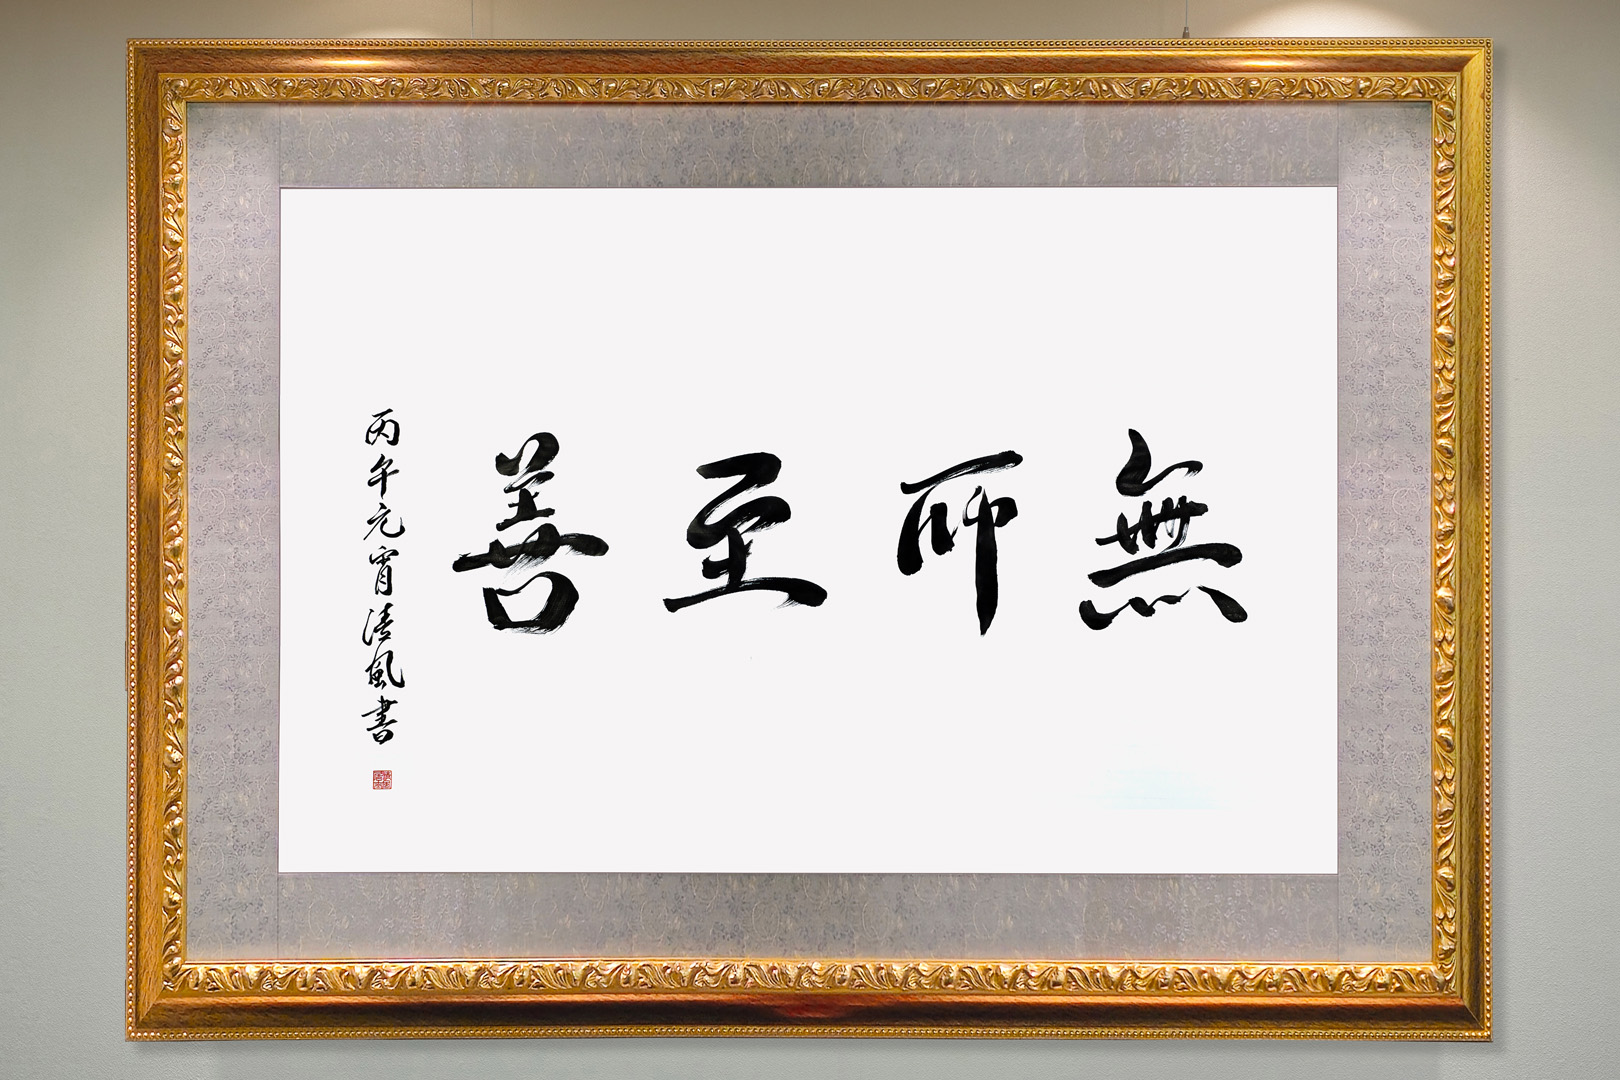 無所至善
丙午元宵清風書